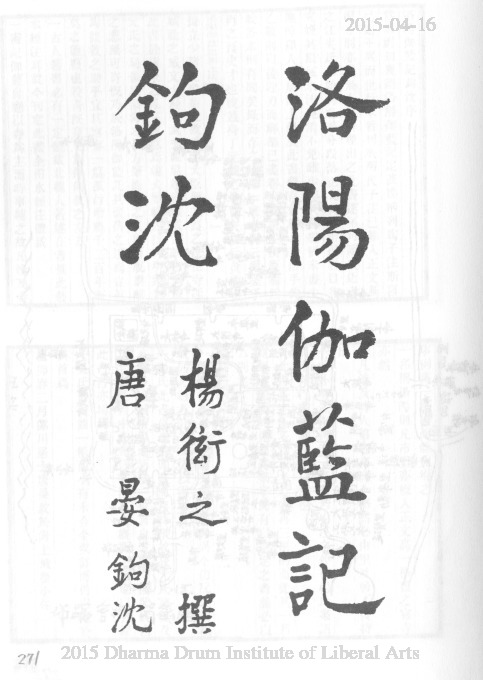 2015-04-16
洛陽伽藍記
鉤沈
楊衒之 撰
唐 晏 鉤沈
271
2015 Dharma Drum Institute of Liberal Arts